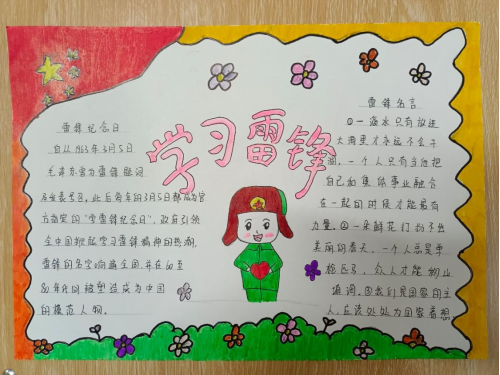 学习雷锋
雷锋纪念日
自从1963年3月5日
毛主席曾为雷锋题词
发表呈名,此后每年的3月5日都成为官
方指定的“学雷锋纪念日”,政府引领
全中国掀起学习雷锋精神的热潮,
雷锋的名字响遍全国,并在60至
80年代的被塑造成为中国
的模范人物。
雷锋名言
①一滴水只有放进
大海里才永远不会干
涸,一个人只有当他把
自己和集体事业融合
在一起的时候才能最有
力量。②一朵鲜花打扮不出
美丽的春天,一个人总是单
枪匹马,众人才能移山
填海。③我们是国家的主
人,应该处处为国家着想